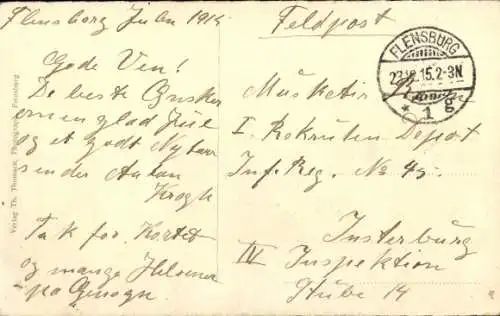 Flensborg Julen 1915
Gode Ven!
De beste Ønsker
om en glad Jul
og et godt Nytaar
sender Anton
Krogh
Tak for Kortet
og mange Hilsner
paa Gensyn.
Verlag Th. Thomsen, Flensburg
Feldpost
FLENSBURG
15.2-3N
* 1 g
Musketier
I. Rekruten Depot
Inf. Reg. No 45.
Insterburg
IV Inspektion
Stube 14